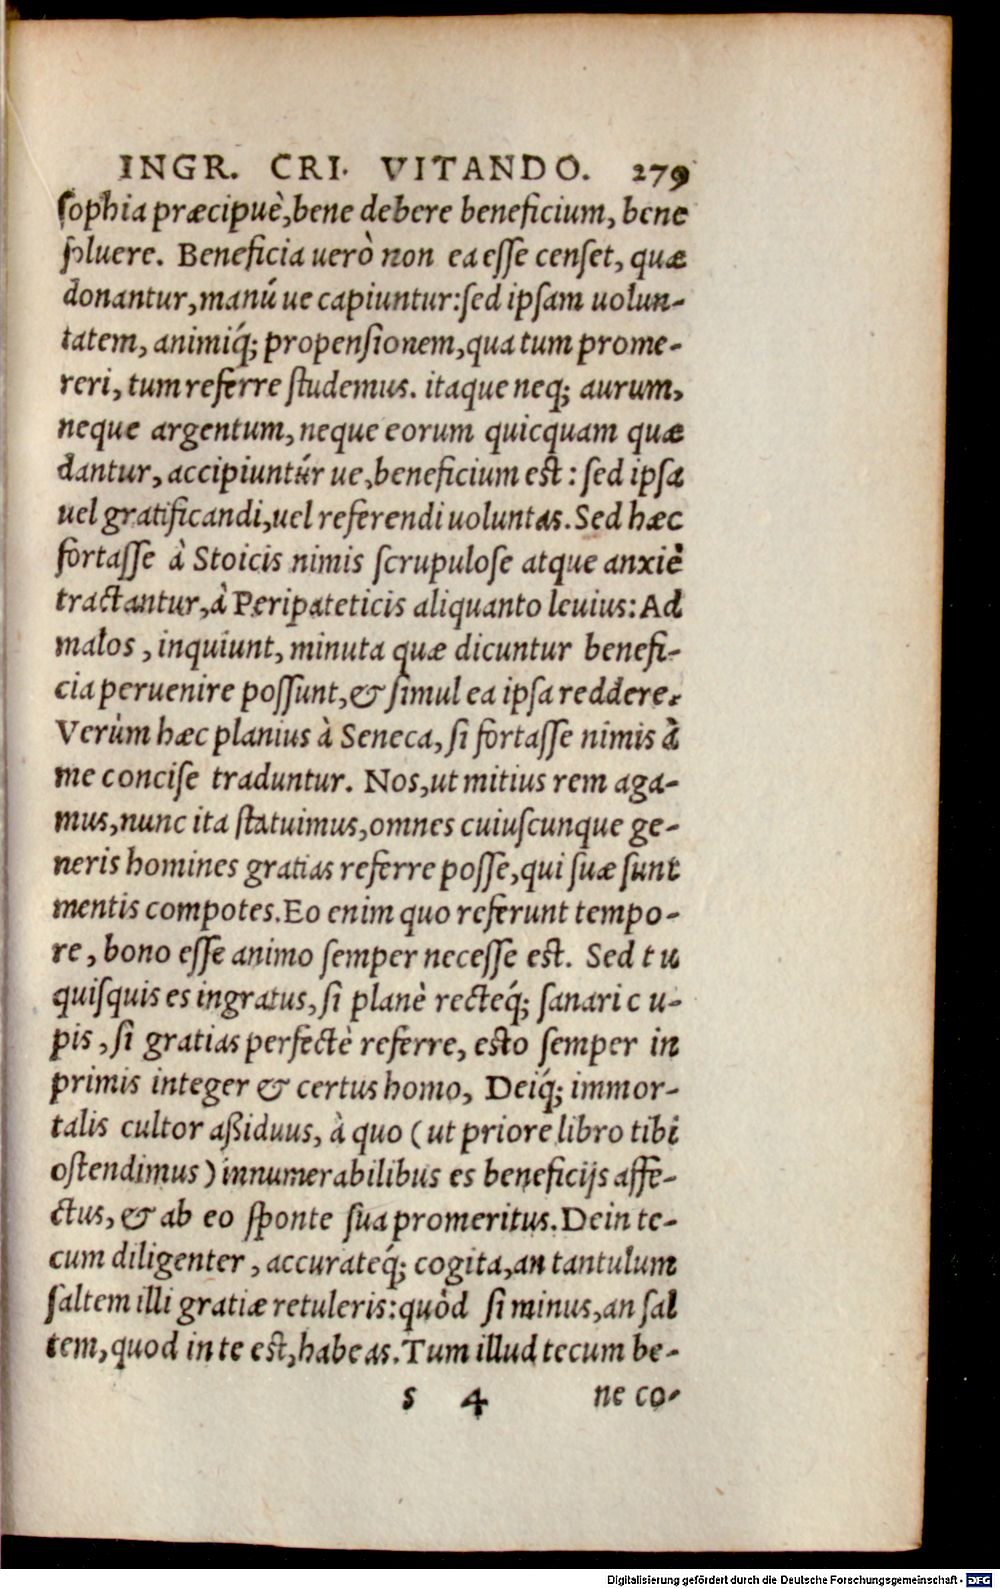 INGR. CRI. VITANDO. 279
sophia præcipuè, bene debere beneficium, bene
soluere. Beneficia uerò non ea esse censet, quæ
donantur, manú ue capiuntur: sed ipsam uolun-
tatem, animiq́; propensionem, qua tum prome-
reri, tum referre studemus. itaque neq; aurum,
neque argentum, neque eorum quicquam quæ
dantur, accipiuntúr ue, beneficium est: sed ipsa
uel gratificandi, uel referendi uoluntas. Sed hæc
fortasse à Stoicis nimis scrupulose atque anxiè
tractantur, à Peripateticis aliquanto leuius: Ad
malos, inquiunt, minuta quæ dicuntur benefi-
cia peruenire possunt, & simul ea ipsa reddere.
Verùm hæc planius à Seneca, si fortasse nimis à
me concise traduntur. Nos, ut mitius rem aga-
mus, nunc ita statuimus, omnes cuiuscunque ge-
neris homines gratias referre posse, qui suæ sunt
mentis compotes. Eo enim quo referunt tempo-
re, bono esse animo semper necesse est. Sed tu
quisquis es ingratus, si planè recteq́; sanari cu-
pis, si gratias perfectè referre, esto semper in
primis integer & certus homo, Deiq́; immor-
talis cultor aßiduus, à quo (ut priore libro tibi
ostendimus) innumerabilibus es beneficijs affe-
ctus, & ab eo sponte sua promeritus. Dein te-
cum diligenter, accurateq́; cogita, an tantulum
saltem illi gratiæ retuleris: quòd si minus, an sal
tem, quod in te est, habeas. Tum illud tecum be-
s 4 ne co-
Digitalisierung gefördert durch die Deutsche Forschungsgemeinschaft - DFG